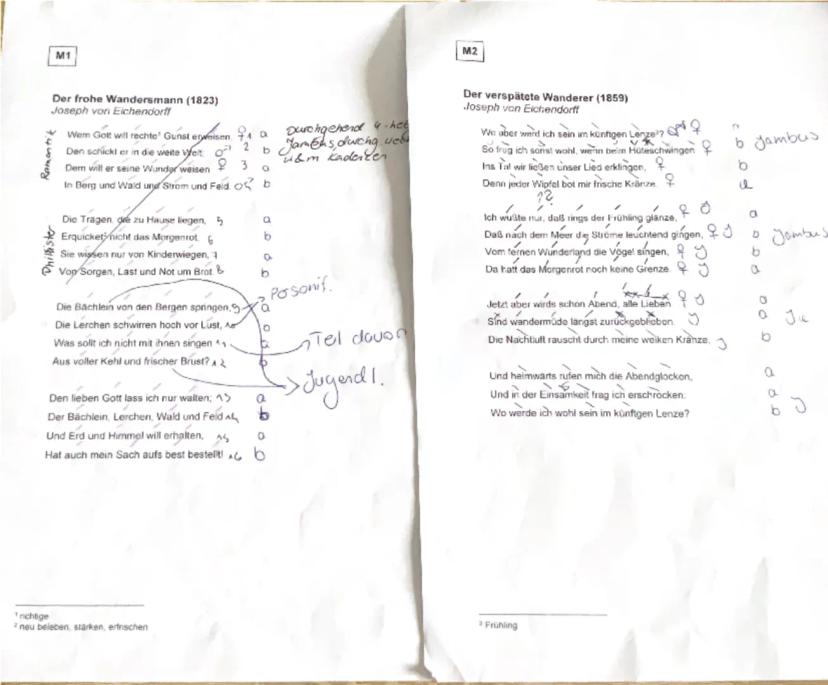 M1
Der frohe Wandersmann (1823)
Joseph von Eichendorff
Romantik
Wem Gott will rechte¹ Gunst erweisen, ♀ 1 a
Den schickt er in die weite Welt, ♂ 2 b
Dem will er seine Wunder weisen ♀ 3 a
In Berg und Wald und Strom und Feld. ♂ b
Durchgehend 4-heb
Jambus, durchg.
u&m Kadenzen
Philister
Die Trägen, die zu Hause liegen, 5 a
Erquicket² nicht das Morgenrot, 6 b
Sie wissen nur von Kinderwiegen, 7 a
Von Sorgen, Last und Not um Brot. 8 b
Die Bächlein von den Bergen springen, 9 a
Die Lerchen schwirren hoch vor Lust, 10
Was sollt ich nicht mit ihnen singen 11 a
Aus voller Kehl und frischer Brust? 12 b
Personif.
Teil davon
Jugendl.
Den lieben Gott lass ich nur walten; 13 a
Der Bächlein, Lerchen, Wald und Feld 14 b
Und Erd und Himmel will erhalten, 15 a
Hat auch mein Sach aufs best bestellt! 16 b
¹ richtige
² neu beleben, stärken, erfrischen
M2
Der verspätete Wanderer (1859)
Joseph von Eichendorff
Wo aber werd ich sein im künftgen Lenze³? ♀
So frug ich sonst wohl, wenn beim Hüteschwingen ♀ b Jambus
Ins Tal wir ließen unser Lied erklingen, ♀ b
Denn jeder Wipfel bot mir frische Kränze. ♀ a
Ich wußte nur, daß rings der Frühling glänze, ♀ a
Daß nach dem Meer die Ströme leuchtend gingen, ♀ b Jambus
Vom fernen Wunderland die Vögel singen, ♀ b
Da hatt das Morgenrot noch keine Grenze. ♀ a
Jetzt aber wirds schon Abend, alle Lieben ♀ a
Sind wandermüde längst zurückgeblieben, a
Die Nachtluft rauscht durch meine welken Kränze, b
Und heimwärts rufen mich die Abendglocken, a
Und in der Einsamkeit frag ich erschrocken: a
Wo werde ich wohl sein im künftgen Lenze? b
³ Frühling